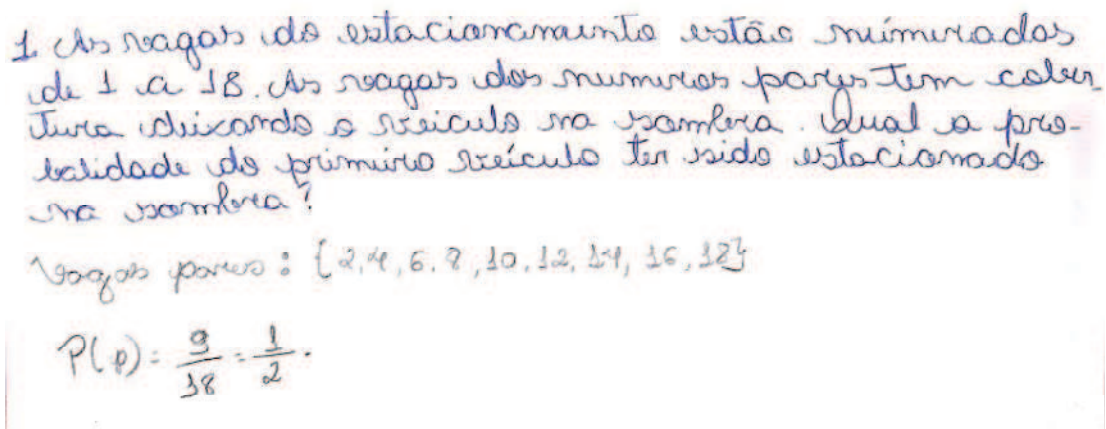 1. As vagas do estacionamento estão númeradas
de 1 a 18. As vagas dos numeros pares tem cober-
tura deixando o veiculo na sombra. Qual a pro-
balidade do primeiro veículo ter sido estacionado
na sombra?
Vagas pares: {2,4,6,8,10,12,14,16,18}
P(p) = 9/18 = 1/2.